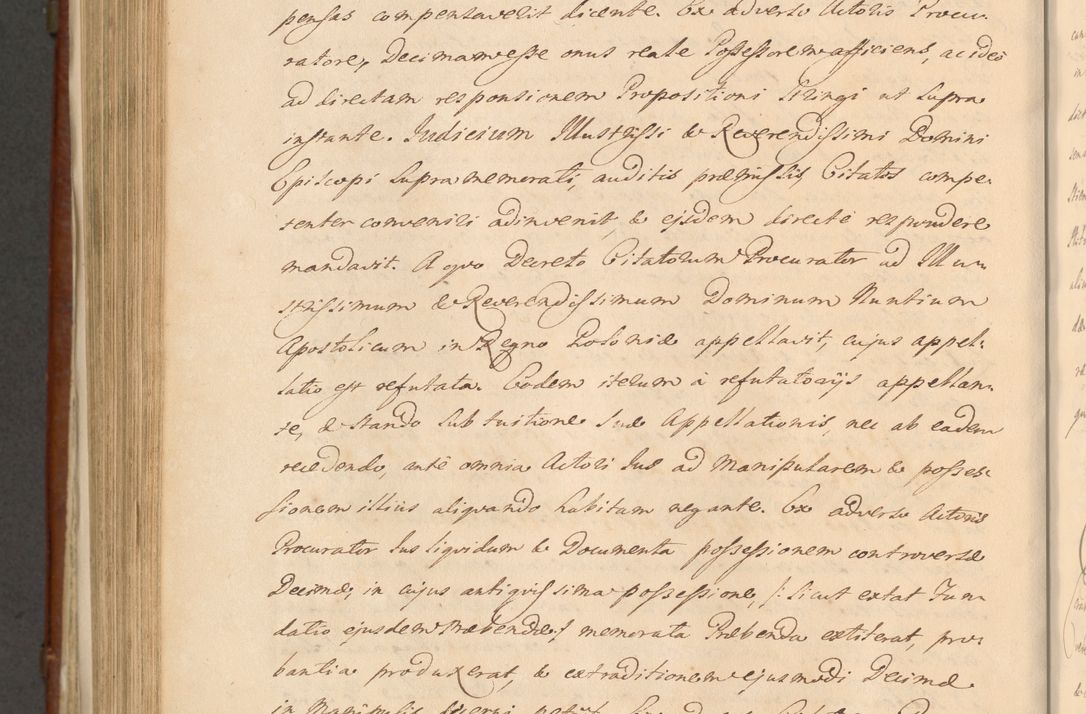 pensas compensaverit dicente. Ex adverso Actoris Procu-
ratore, Decimam esse onus reale Possessorem afficiens, ac ideo
ad directam responsionem Propositioni stringi ut supra
instante. Judicium Illustrissi & Reverendissimi Domini
Episcopi supra memorati, auditis præmissis, Citatos compe-
tenter conveniri adinvenit, & ejsdem directé respondere
mandavit. A quo Decreto Citatorum Procurator ad Illu-
strissimum & Reverendissimum Dominum Nuntium
Apostolicum in Regno Poloniæ appellavit, cujus appel-
latio est refutata. Eodem iterum à refutatorijs appellan-
te, & stando sub tuitione suæ Appellationis, nec ab eadem
recedendo, anté omnia Actori Jus ad Manipularem & posses-
sionem illius aliquando habitam negante. Ex adverso Actoris
Procurator Jus liquidum & Documenta possessionem controversæ
Decimæ, in cujus antiquissima possessione, /: sicut extat Fun-
datio ejusdem Præbendæ :/ memorata Præbenda extiterat, pro-
bantia produxerat, & extraditionem ejusmodi Decimæ
in Manipulis